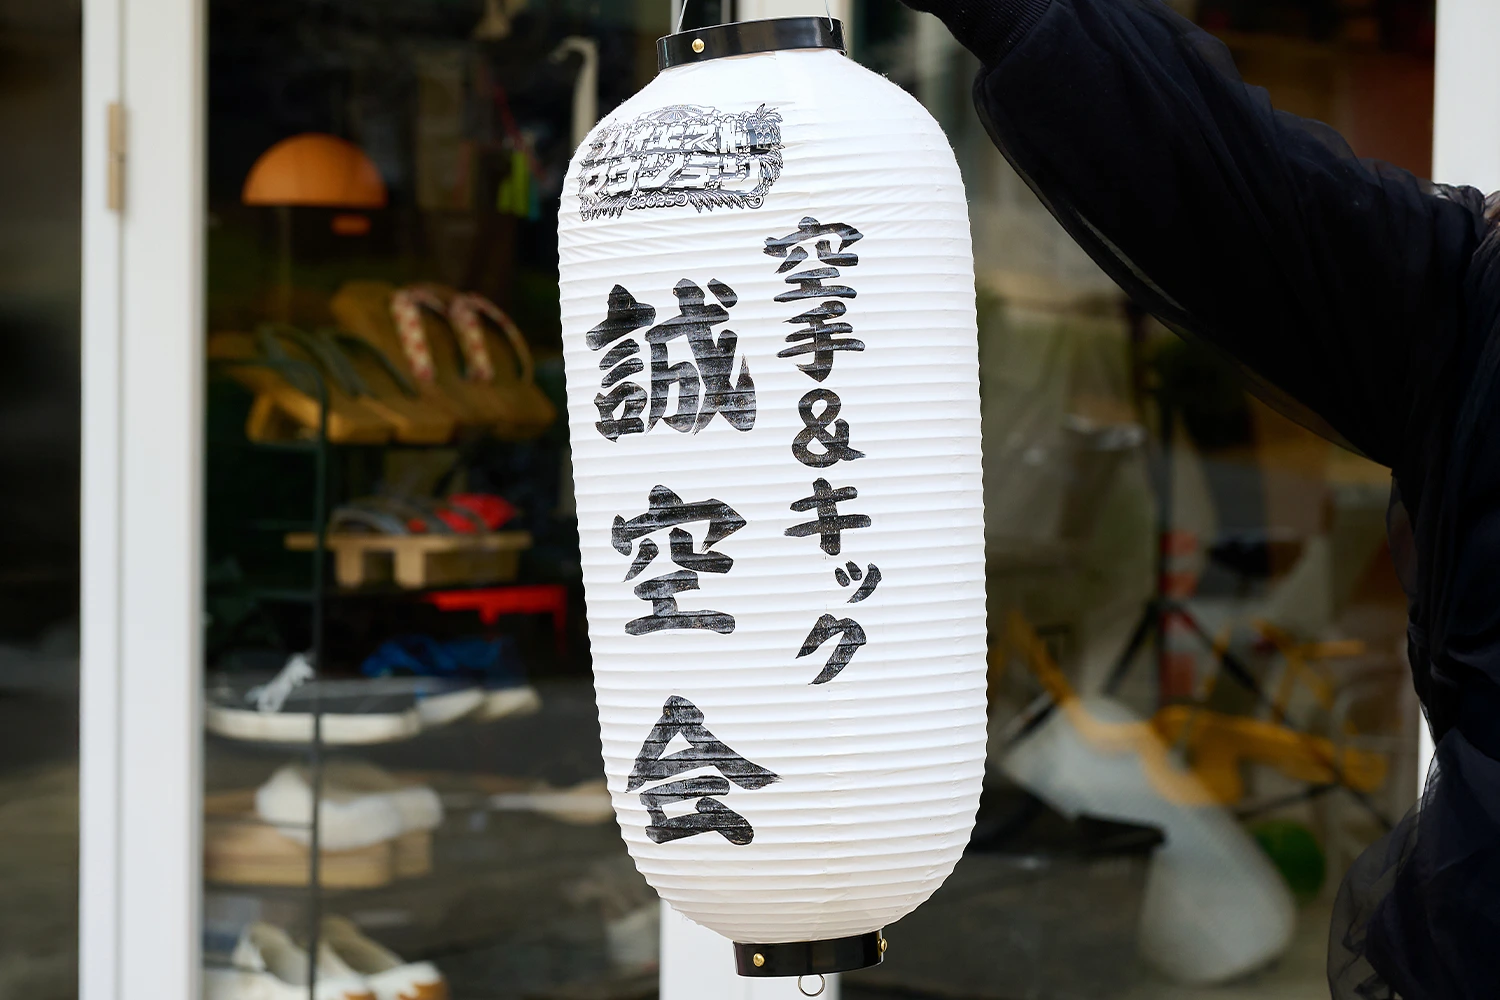 空手&キック
誠空会
2025